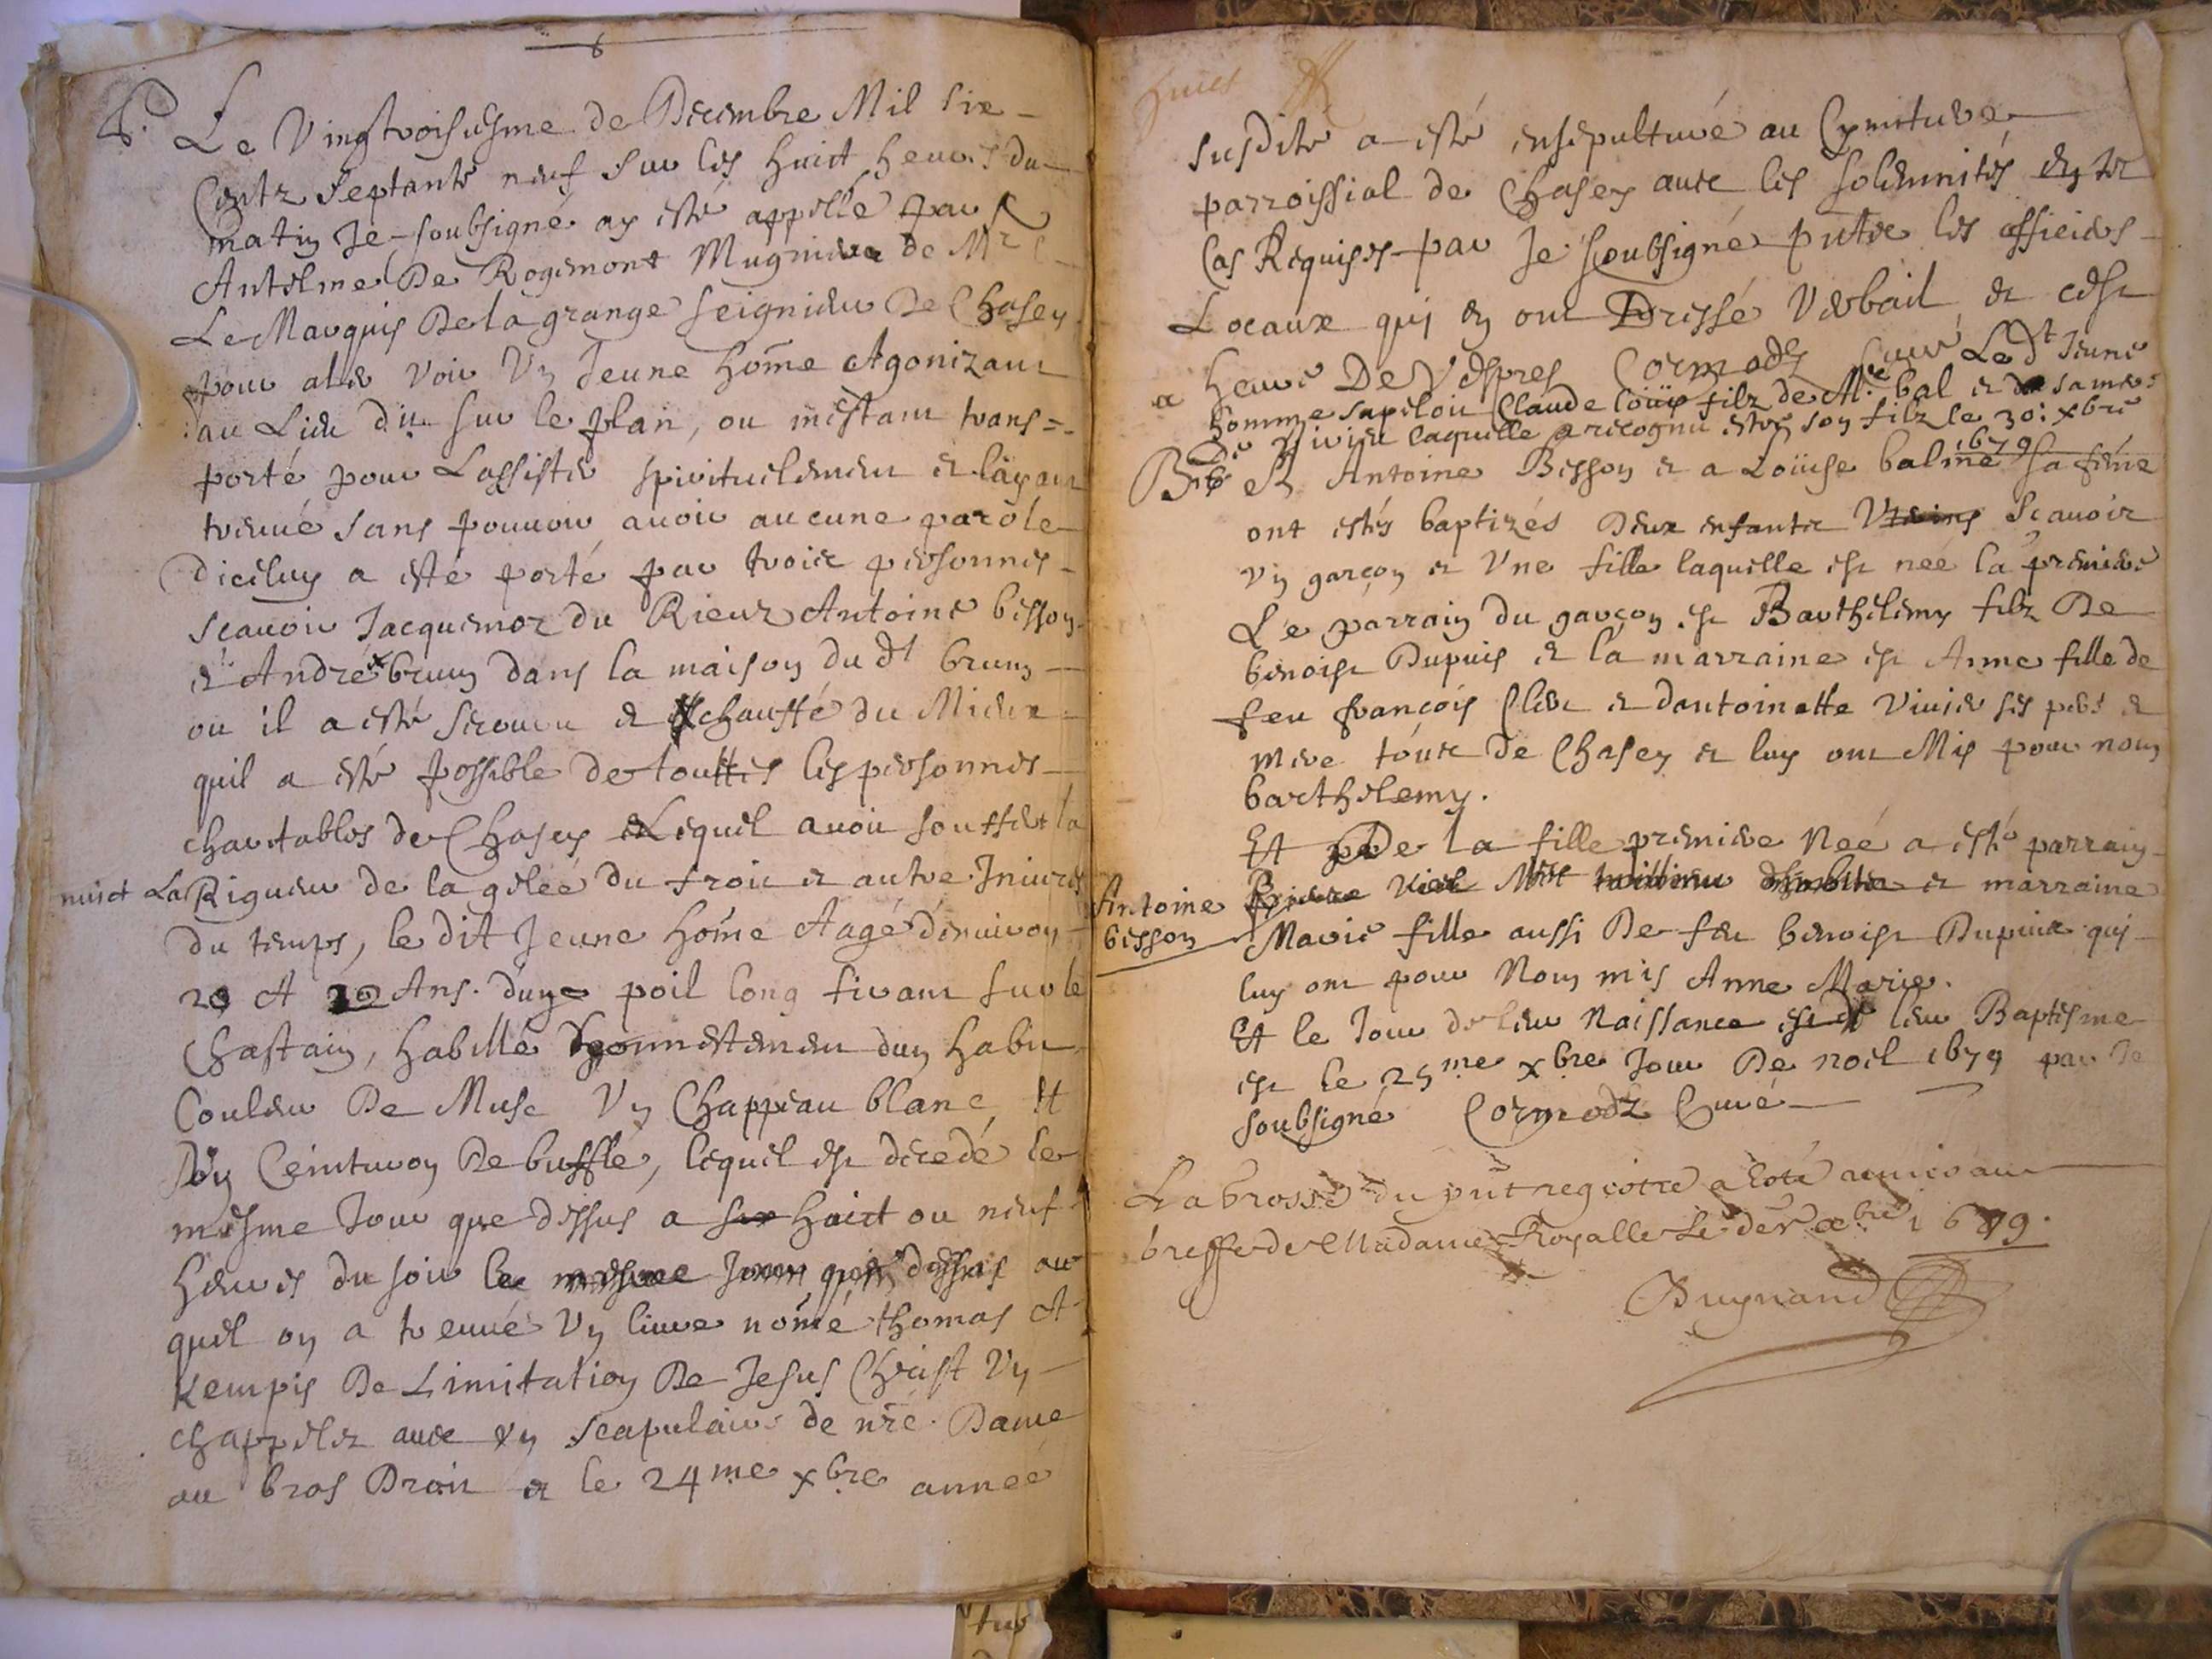 S. Le Vingtroisiesme de Decembre Mil six
Centz septante neuf sur les huict heures du
matin Je soubsigné ay esté appellé par
Antelme De Rogemont Mugnier de Mr
Le Marquis De la grange seignieur De Chasey
pour aler voir Vn Jeune home Agonizant
au Lieu dit sur le plan, ou m'estant trans=
porté pour Lassister spirituelement et layant
treuué sans pouuoir auoir aucune parole
diceluy a esté porté par trois personnes
scauoir Jacquemoz du Rieuz Antoine besson
et André brun dans la maison du dt brun
ou il a esté secouru et chauffé du Mieux
quil a esté possible de touttes les personnes
charitables de Chasey Lequel auoit souffert la
nuict La Rigueur de la gelée du froit et autre Iniures
du temps, le dit Jeune home Aagé denuiron
20 A 22 Ans. d'une poil long tirant sur le
Chastain, habillé honnestement dun habit
Couleur De Musc Vn Chappeau blanc Et
Vn Ceinturon De buffle, lequel est decedé le
mesme Jour que dessus a huict ou neuf
heures du soir le mesme Jour que dessus au
quel on a treuué Vn liure nomé thomas A
Kempis De Limitation De Jesus Christ Vn
chappelet auec vn scapulaire de nre Dame
au bras Droit et le 24me xbre année
susdite a esté ensepulturé au Cymitiere
parroissial de Chasey auec les solemnités en tel
Cas Requises par Je soubsigné pntz les officiers
Locaux qui en ont Dressé Verbail et cest
a heure De Vespres Cormodz Curé Le dt Jeune
homme sapeloit Claude filz de Mr bal et de sa mere
De laquelle a recognu estre son filz le 30e xbre
1679
B. Et Antoine Besson et a Loüise balme sa feme
ont estés baptizés Deux enfantz Scauoir
vn garçon et Vne fille laquelle est neé la premiere
Le parrain du garçon est Barthelemy filz De
benoist Dupuis et la marraine est Anne fille de
feu françois Clerc et dantoinette Viuier ses pere et
mere touts de Chasey et luy ont Mis pour nom
barthelemy.
Et De la fille premiere Neé a esté parrain
Antoine besson et marraine
Marie fille aussi De feu benoist Dupuis qui
luy ont pour Nom mis Anne Marie.
Et le Jour de leur Naissance et leur Baptesme
est le 25me xbre Jour De noel 1679 par Je
soubsigné Cormodz Curé
La brosse du pnt registre a esté remis au
greffe de Madame Royalle Le der xbre 1679.
Buynand